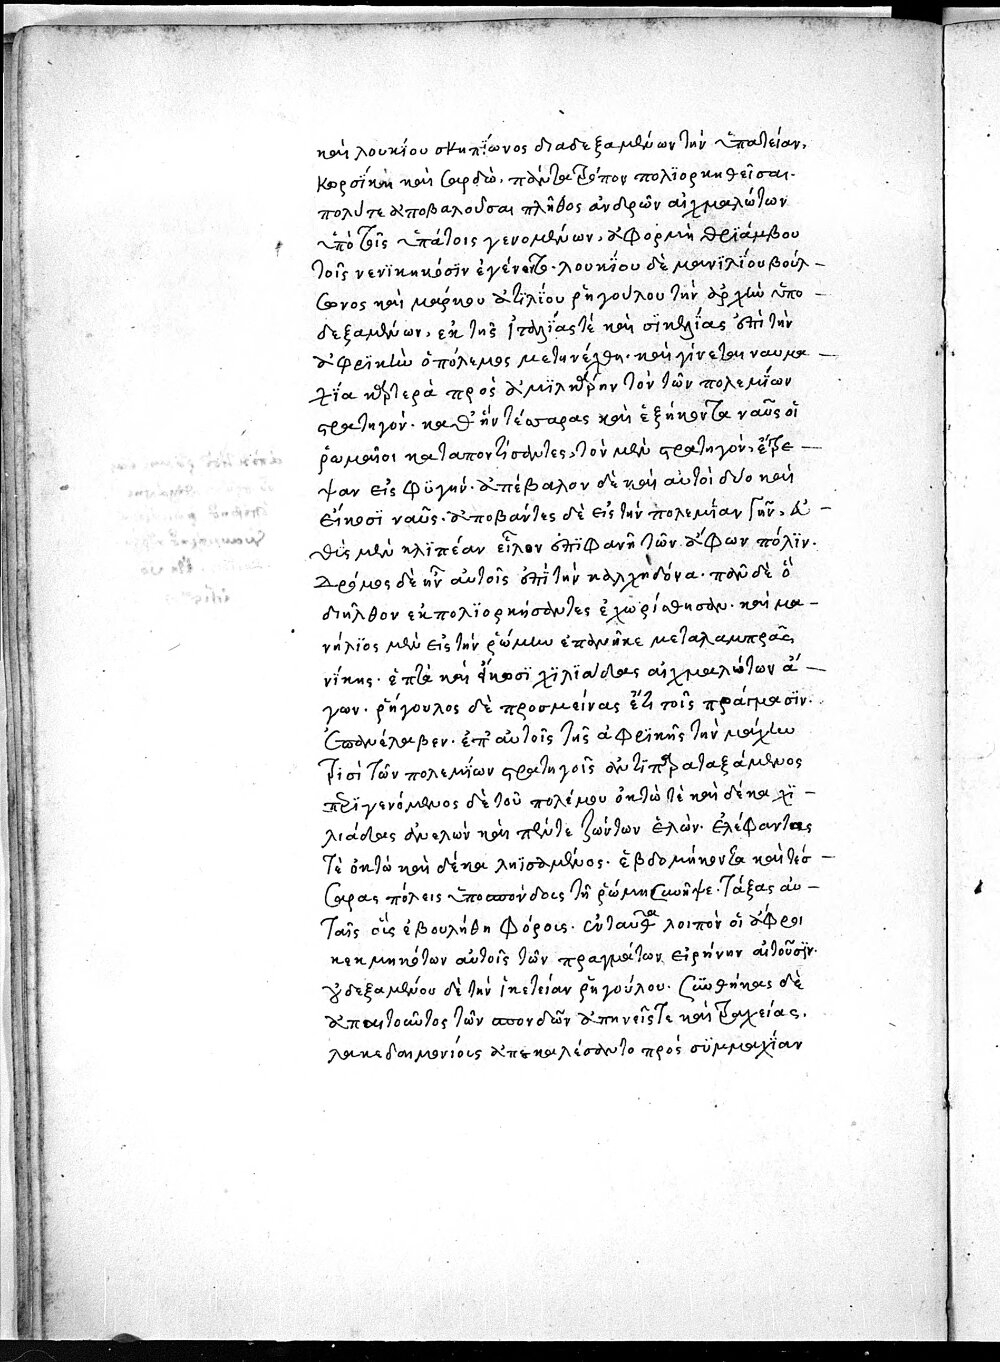 καὶ λουκΐου σκηπΐωνος διαδεξαμένων τὴν ὑπατείαν,
κορσΐκὴ καὶ σαρδὼ, πάντα τρόπον πολϊορκηθεῖσαι.
πολύ τε ἀποβαλοῦσαι πλῆθος ἀνδρῶν αἰχμαλώτων
ὑπὸ τοῖς ὑπάτοις γενομένων, ἀφορμὴ θριάμβου
τοῖς νενϊκηκόσϊν ἐγένοντο. λουκΐου δὲ μανϊλΐου βούλ-
σωνος καὶ μάρκου ἀτϊλΐου ῥηγούλου τὴν ἀρχὴν ὑπο-
δεξαμένων, ἐκ τῆς ἰταλίας τὲ καὶ σϊκελίας ἐπὶ τὴν
ἀφρϊκὴν ὁ πόλεμος μετηνέχθη. καὶ γίνεται ναυμα-
χΐα καρτερὰ πρὸς ἀμϊλκάρην τὸν τῶν πολεμΐων
στρατηγόν. καθ' ἣν τέσσαρας καὶ ἑξήκοντα ναῦς οἱ
ῥωμαῖοι καταποντίσαντες, τὸν μὲν στρατηγὸν, ἔτρε-
ψαν εἰς φϋγήν. ἀπέβαλον δὲ καὶ αὐτοὶ δύο καὶ
εἴκοσϊ ναῦς. ἀποβάντες δὲ εἰς τὴν πολεμΐαν γῆν, αὐ-
θις μὲν κλϊπέαν εἷλον ἐπϊφανῆ τῶν ἄφρων πόλϊν.
δρόμος δὲ ἦν αὐτοῖς ἐπὶ τὴν καλχηδόνα. πᾶν δὲ ὃ
διῆλθον ἐκπολϊορκήσαντες ἐχωρίσθησαν. καὶ μα-
νήλϊος μὲν εἰς τὴν ῥώμην ἐπανῆκε μετὰ λαμπρᾶς
νίκης. ἑπτὰ καὶ εἴκοσϊ χϊλϊάδας αἰχμαλώτων ἄ-
γων. ῥήγουλος δὲ προσμείνας ἔτι τοῖς πράγμασϊν.
ἐπανέλαβεν. ἐπ' αὐτοῖς τῆς ἀφρϊκῆς τὴν μάχην
τρισὶ τῶν πολεμΐων στρατηγοῖς ἀντϊπαραταξάμενος
περϊγενόμενος δὲ τοῦ πολέμου ὀκτὼ τὲ καὶ δέκα χϊ-
λιάδας ἀνελὼν καὶ πέντε ζώντων ἑλὼν. ἐλέφαντας
τὲ ὀκτὼ καὶ δέκα ληϊσάμενος. ἑβδομήκοντα καὶ τέσ-
σαρας πόλεις ὑποσπόνδους τῆ ῥώμη συνῆψε. τάξας αὐ-
ταῖς οἷς ἐβουλήθη φόροις. ἐνταῦθα λοιπὸν οἱ ἄφροι
κεκμηκότων αὐτοῖς τῶν πραγμάτων εἰρήνην αἰτοῦσϊν.
οὐ δεξαμένου δὲ τὴν ἱκετείαν ῥηγούλου. συνθήκας δὲ
ἀπαιτοῦντος τῶν σπονδῶν ἀπηνεῖς τε καὶ τραχείας,
λακεδαιμονίους ἀπεκαλέσαντο πρὸς σϋμμαχΐαν